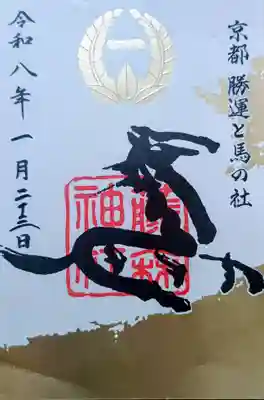 京都 勝運と馬の社
藤森
神社
令和八年一月二十三日